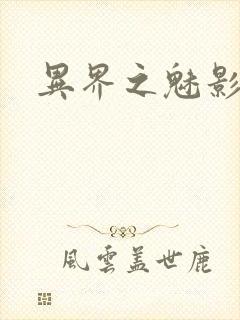 異界之魅影
風雲蓋世鹿